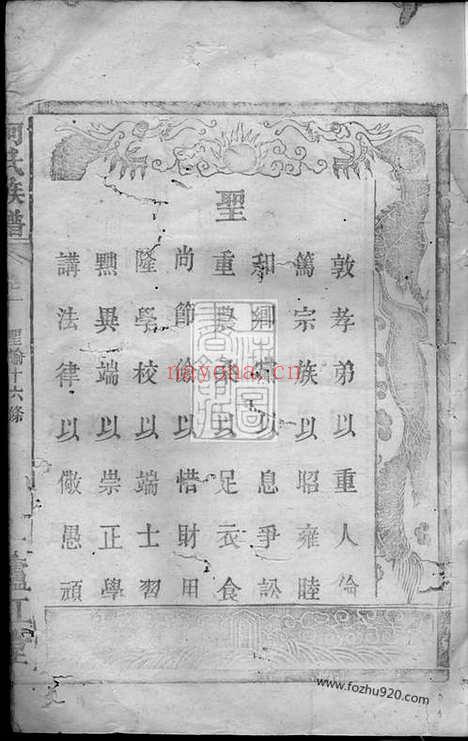 聖
敦孝弟以重人倫
篤宗族以昭雍睦
和鄉黨以息爭訟
重農桑以足衣食
尚節儉以惜財用
隆學校以端士習
黜異端崇正學
講法律以儆愚頑
何氏族譜
聖諭十六條
廬江堂
nayona.cn
www.fozhu920.com